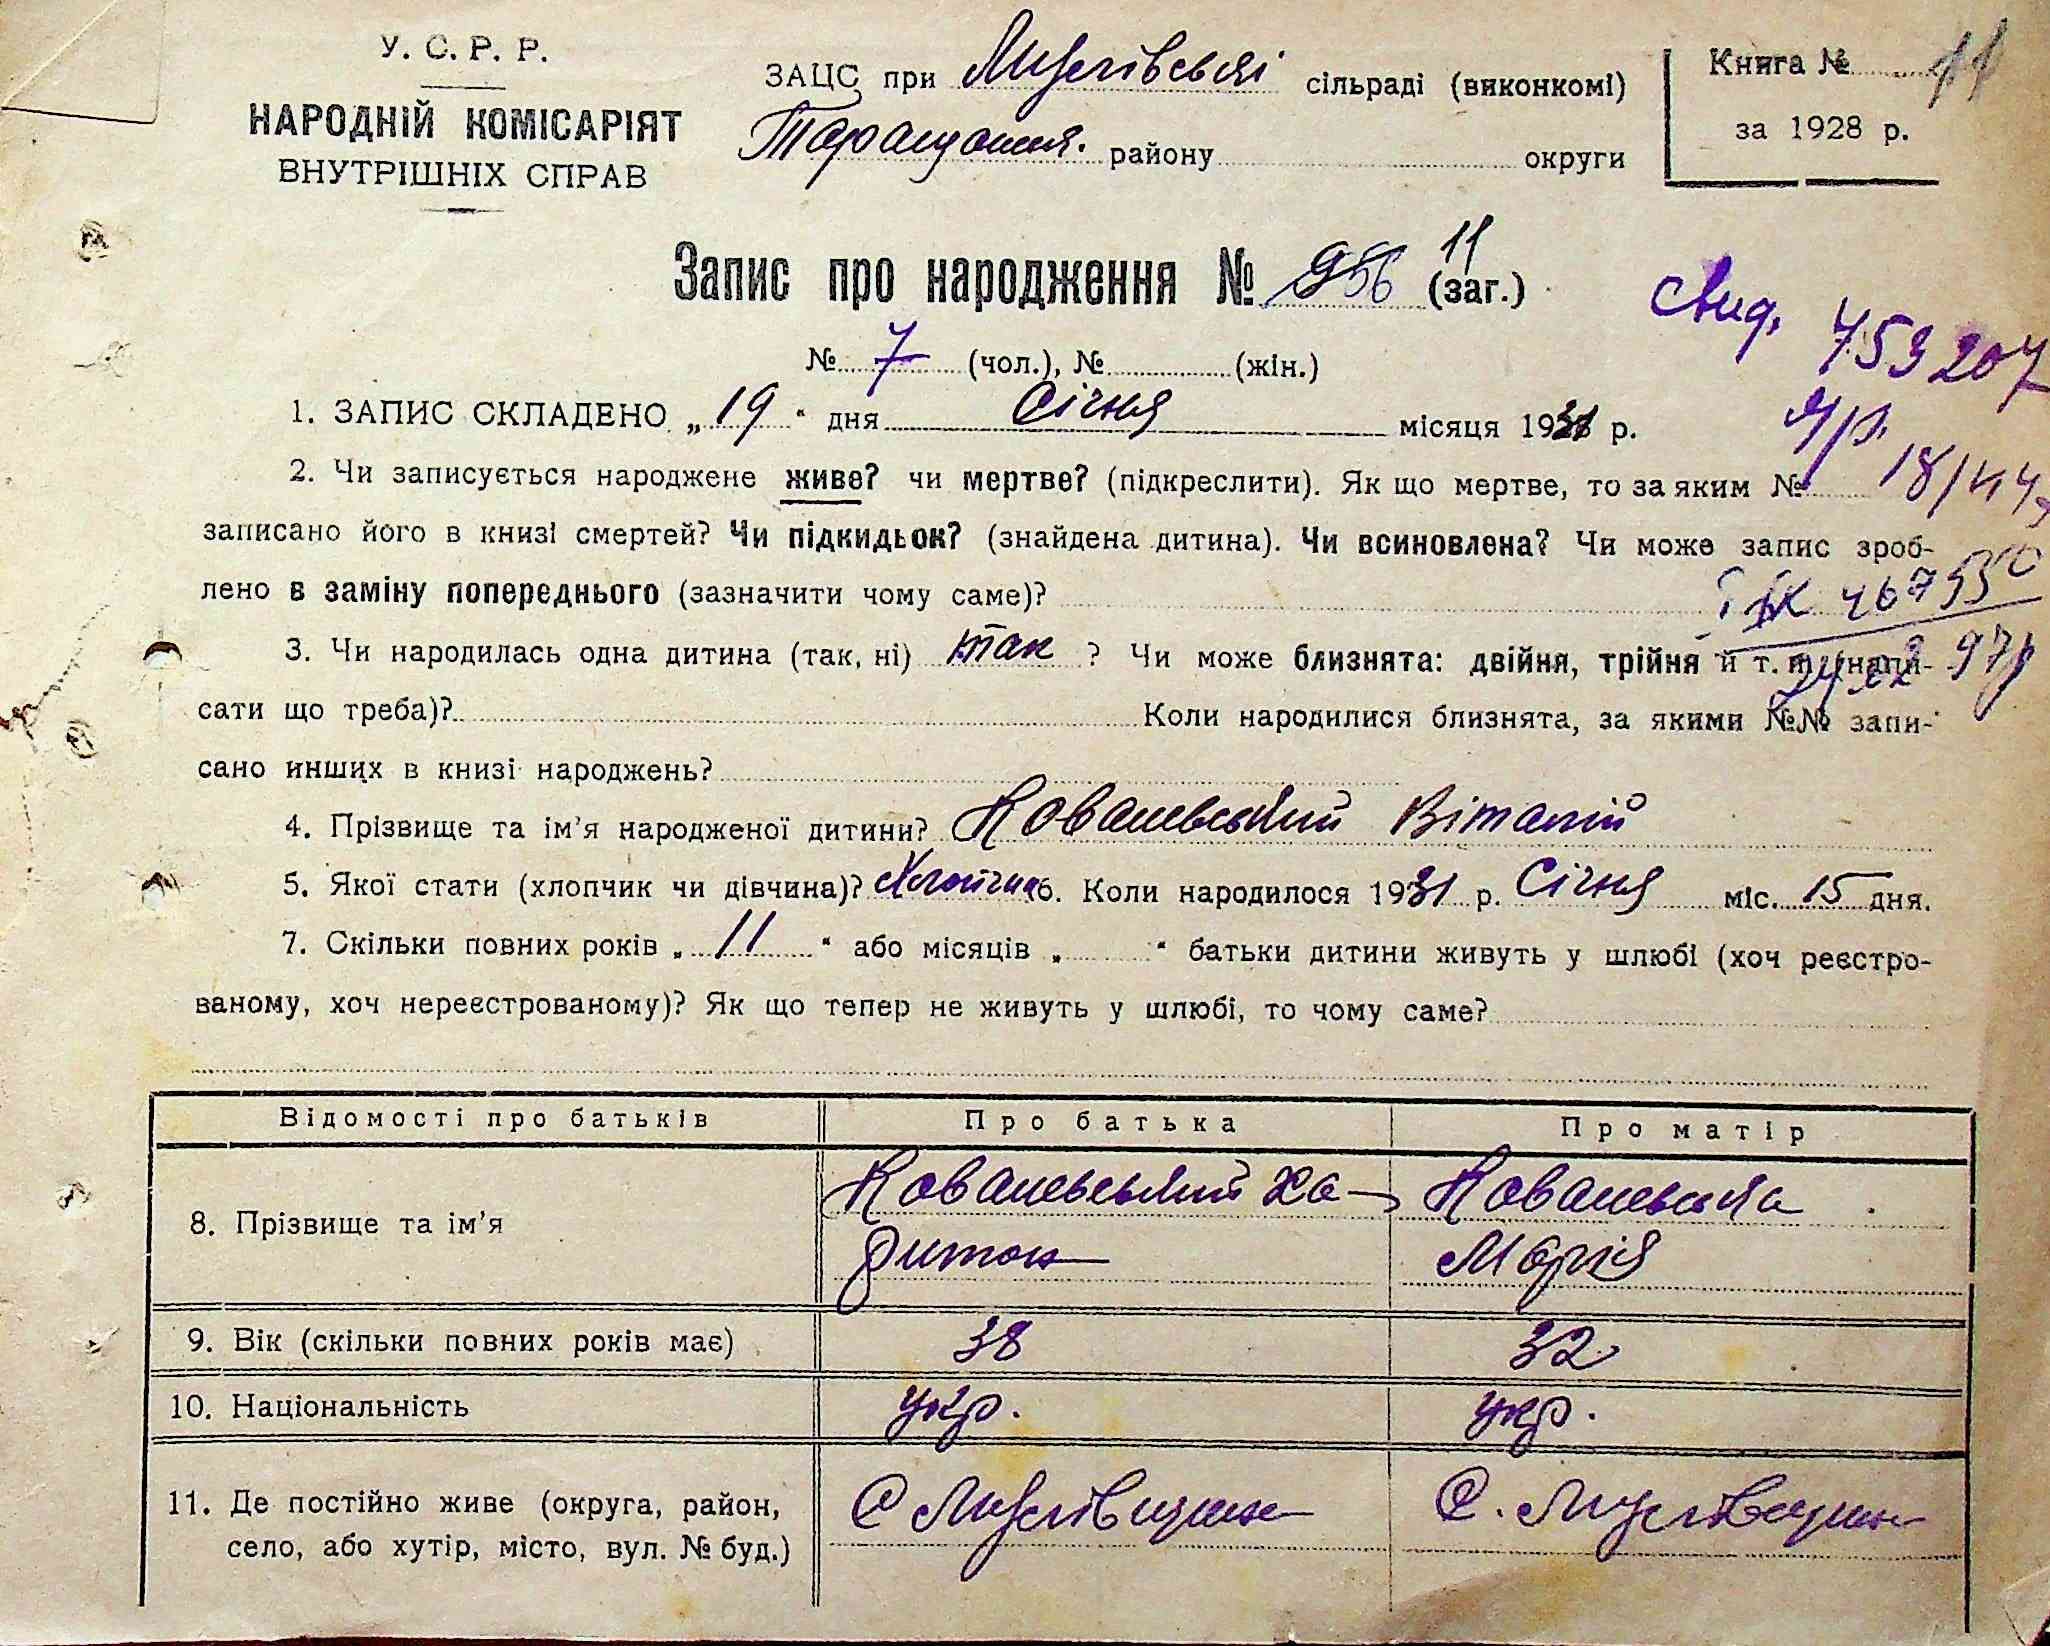 У. С. Р. Р.
НАРОДНІЙ КОМІСАРІЯТ
ВНУТРІШНІХ СПРАВ
ЗАЦС при Лисівській сільраді (виконкомі)
Таращанск. району округи
Книга № 11
за 1928 р.
11
Запис про народження № 956 (заг.)
№ 7 (чол.), № (жін.)
1. ЗАПИС СКЛАДЕНО „ 19 “ дня Січня місяця 1931 р.
2. Чи записується народжене живе? чи мертве? (підкреслити). Як що мертве, то за яким №
записано його в книзі смертей? Чи підкидьок? (знайдена дитина). Чи всиновлена? Чи може запис зроб-
лено в заміну попереднього (зазначити чому саме)?
3. Чи народилась одна дитина (так, ні) так ? Чи може близнята: двійня, трійня й т. п. (напи-
сати що треба)? Коли народилися близнята, за якими №№ запи-
сано инших в книзі народжень?
4. Прізвище та ім’я народженої дитини? Ковалевський Віталій
5. Якої стати (хлопчик чи дівчина)? Хлопчик 6. Коли народилося 1931 р. Січня міс. 15 дня.
7. Скільки повних років „ 11 “ або місяців „ “ батьки дитини живуть у шлюбі (хоч реєстро-
ваному, хоч нереєстрованому)? Як що тепер не живуть у шлюбі, то чому саме?
Відомості про батьків Про батька Про матір
8. Прізвище та ім’я Ковалевський Ха- Ковалевська
ритон Марія
9. Вік (скільки повних років має) 38 32
10. Національність укр. укр.
11. Де постійно живе (округа, район,
село, або хутір, місто, вул. № буд.)
753207